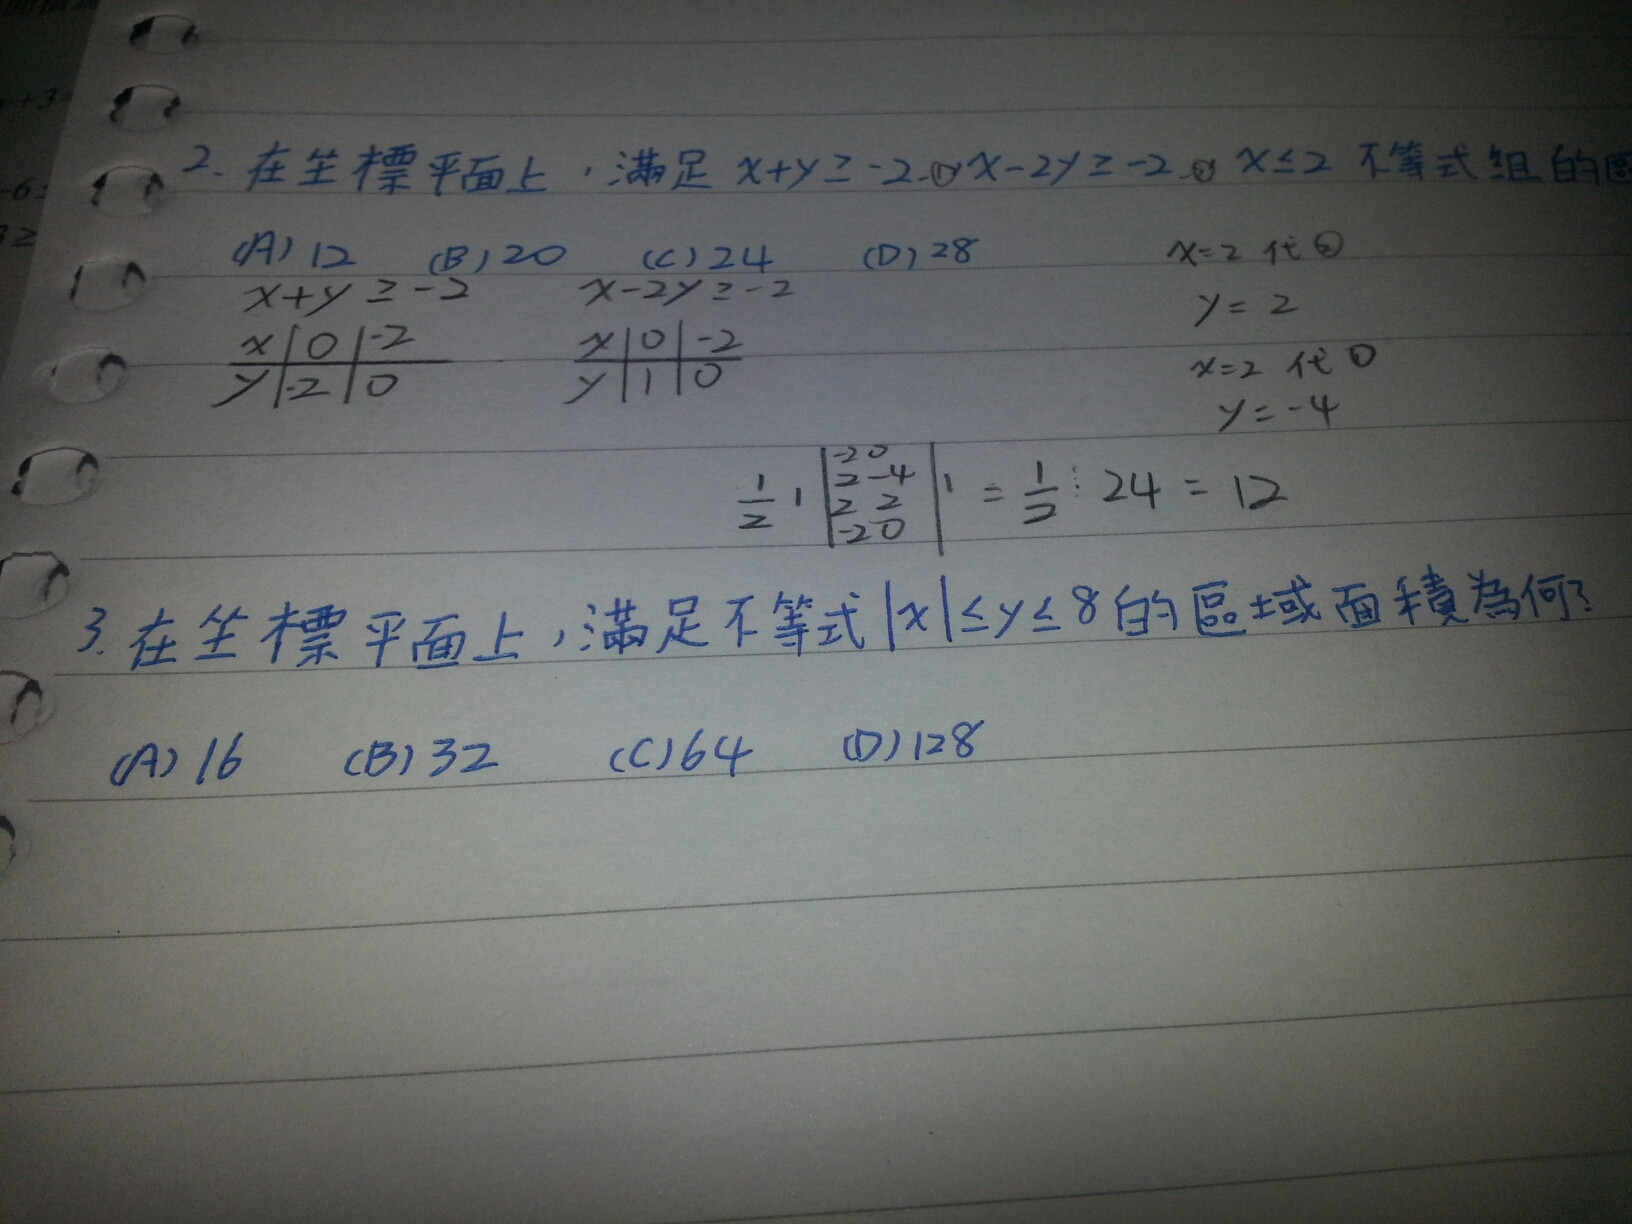 2. 在坐標平面上，滿足 x+y≥-2①，x-2y≥-2② x≤2 不等式組的區
(A) 12 (B) 20 (C) 24 (D) 28
x=2 代②
x+y≥-2 x-2y≥-2
y=2
x|0|-2 x|0|-2
y|-2|0 y|1|0
x=2 代①
y=-4
1/2 | |-2 0
2 -4
2 2
-2 0| | = 1/2 · 24 = 12
3. 在坐標平面上，滿足不等式|x|≤y≤8的區域面積為何?
(A) 16 (B) 32 (C) 64 (D) 128